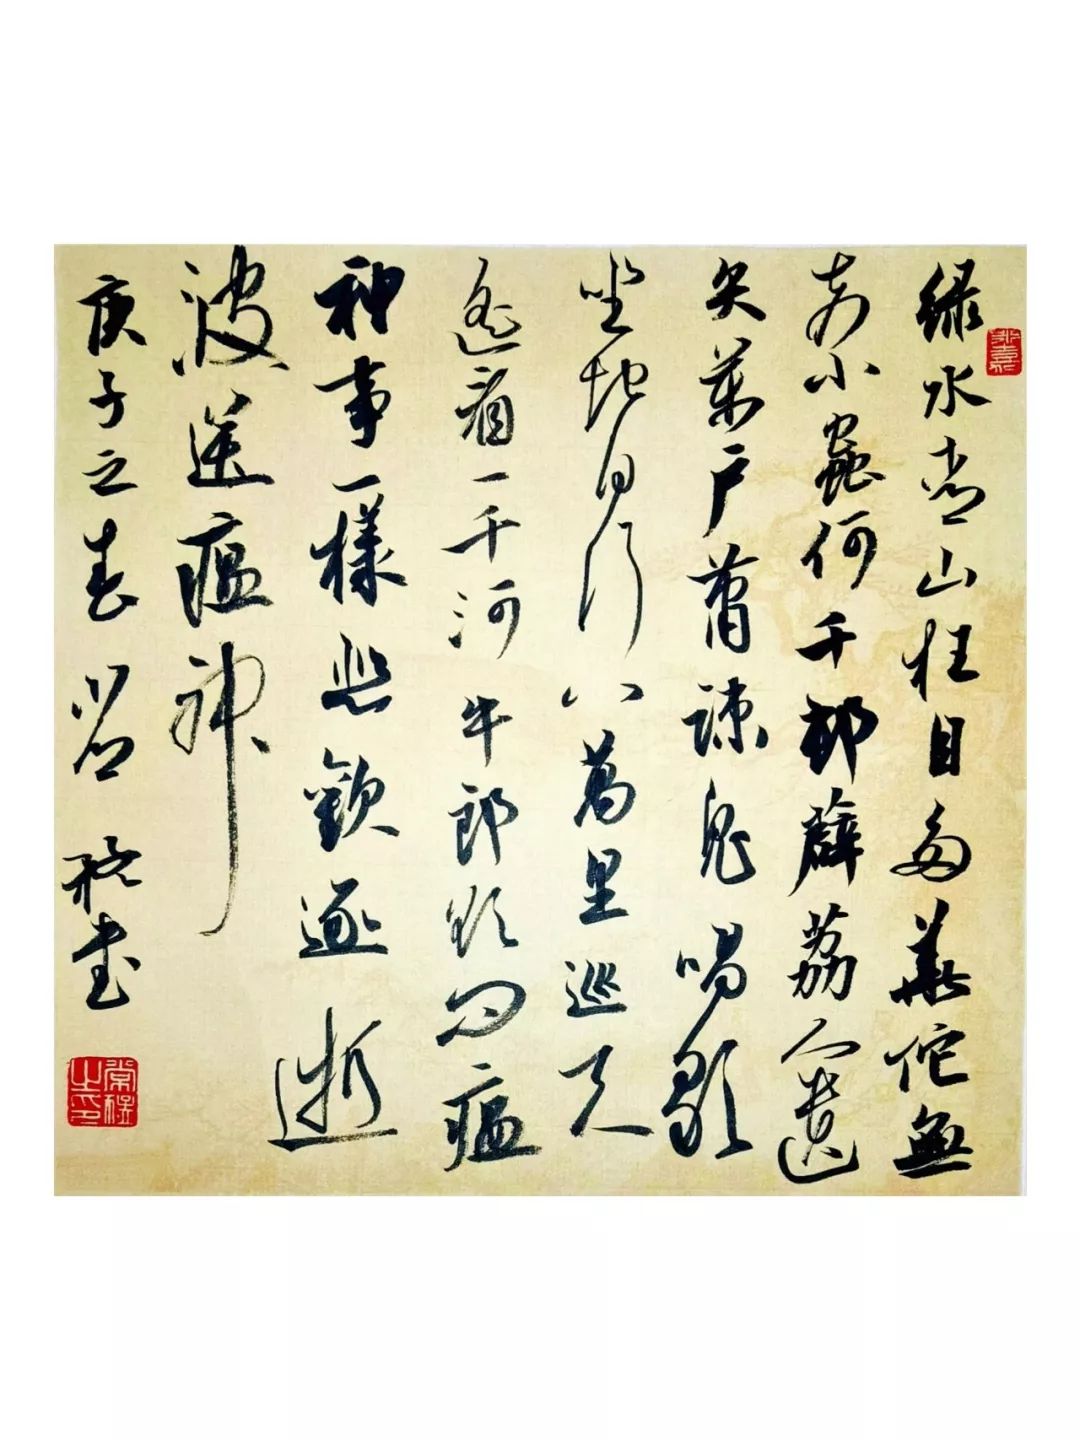 緑水青山枉自多華佗無
奈小蟲何千邨薜荔人遺
矢萬戶蕭疎鬼唱歌
坐地日行八萬里巡天
遙看一千河牛郎欲問瘟
神事一樣悲歡逐逝
波送瘟神
庚子之春常祿書
常祿之印